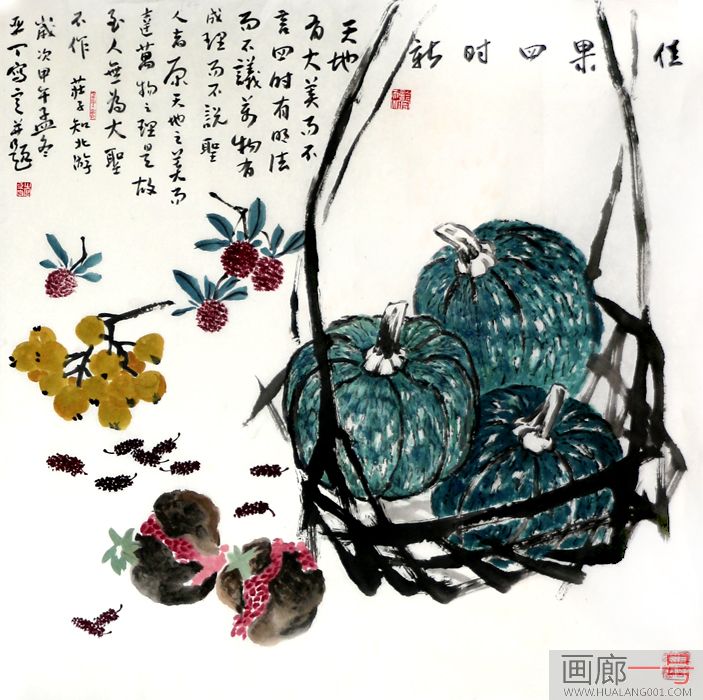 佳果四时新
天地
有大美而不
言四时有明法
而不議萬物有
成理而不說聖
人者原天地之美而
達萬物之理是故
至人無為大聖
不作 莊子知北游
歲次甲午孟冬
亚丁寫意并題
画廊一号
WWW.HUALANG001.COM